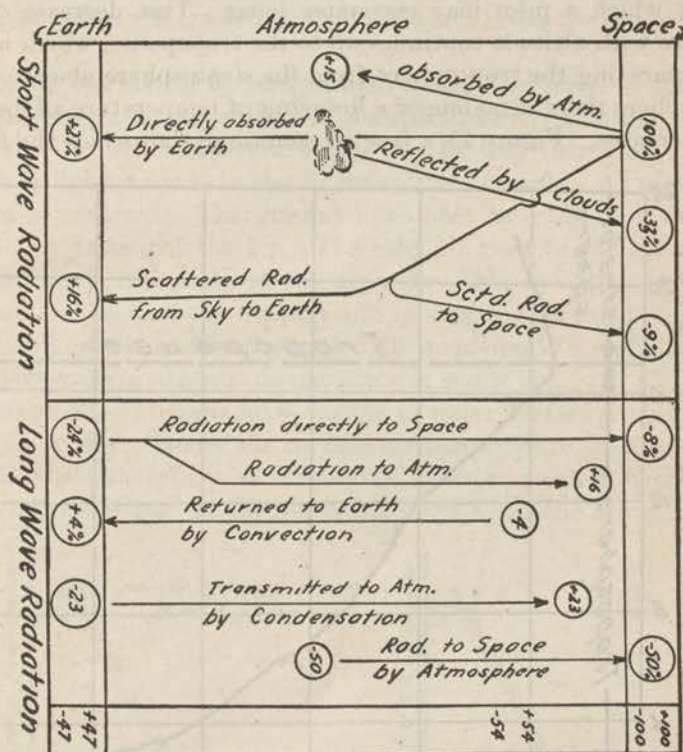 Earth Atmosphere Space
Short Wave Radiation
+15
absorbed by Atm.
100%
+27%
Directly absorbed
by Earth
Reflected by Clouds
-33%
+16%
Scattered Rad.
from Sky to Earth
Sctd. Rad.
to Space
-9%
Long Wave Radiation
-24%
Radiation directly to Space
-8%
Radiation to Atm.
+16
+4%
Returned to Earth
by Convection
-4
-23
Transmitted to Atm.
by Condensation
+23
-50
Rad. to Space
by Atmosphere
-50%
+47
-47
+54
-54
+100
-100